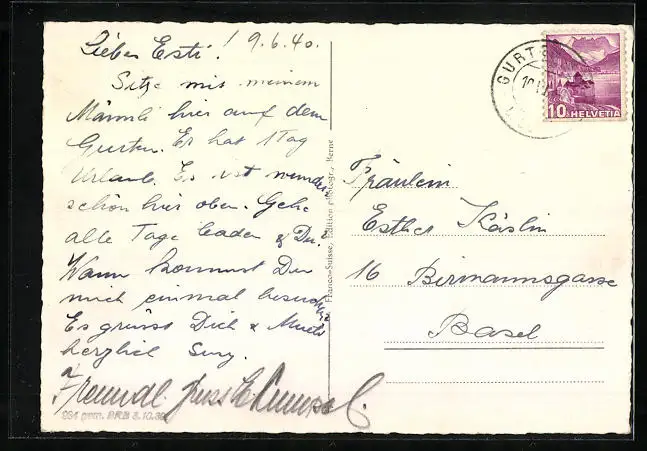 Liebes Esti! 9.6.40.
Sitze mit meinem
Männli hier auf dem
Gurten. Er hat 1 Tag
Urlaub. Es ist wunder
schön hier oben. Gehe
alle Tage baden & Du?
Wann kommst Du
mich einmal besuchen
Es grüsst Dich & Mueti
herzlich Susy.
Freundl. Gruss
994 gem. BRB 3.10.39
Franco-Suisse, Edition photogr., Berne
GURTE
10
HELVETIA
Fräulein
Esther Käslin
16 Birmannsgasse
Basel